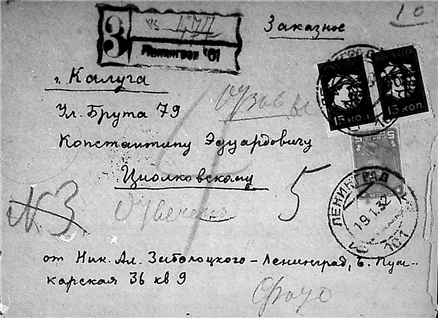 Заказное
10
З
№ 474
Ленинград 101
15 КОП
15 КОП
5
г. Калуга
Ул. Брута 79
Константину Эдуардовичу
Циолковскому
ЛЕНИНГРАД
19.1.32
№ 3
5
от Ник. Ал. Заболоцкого – Ленинград, Б. Пуш-
карская 36 кв 9